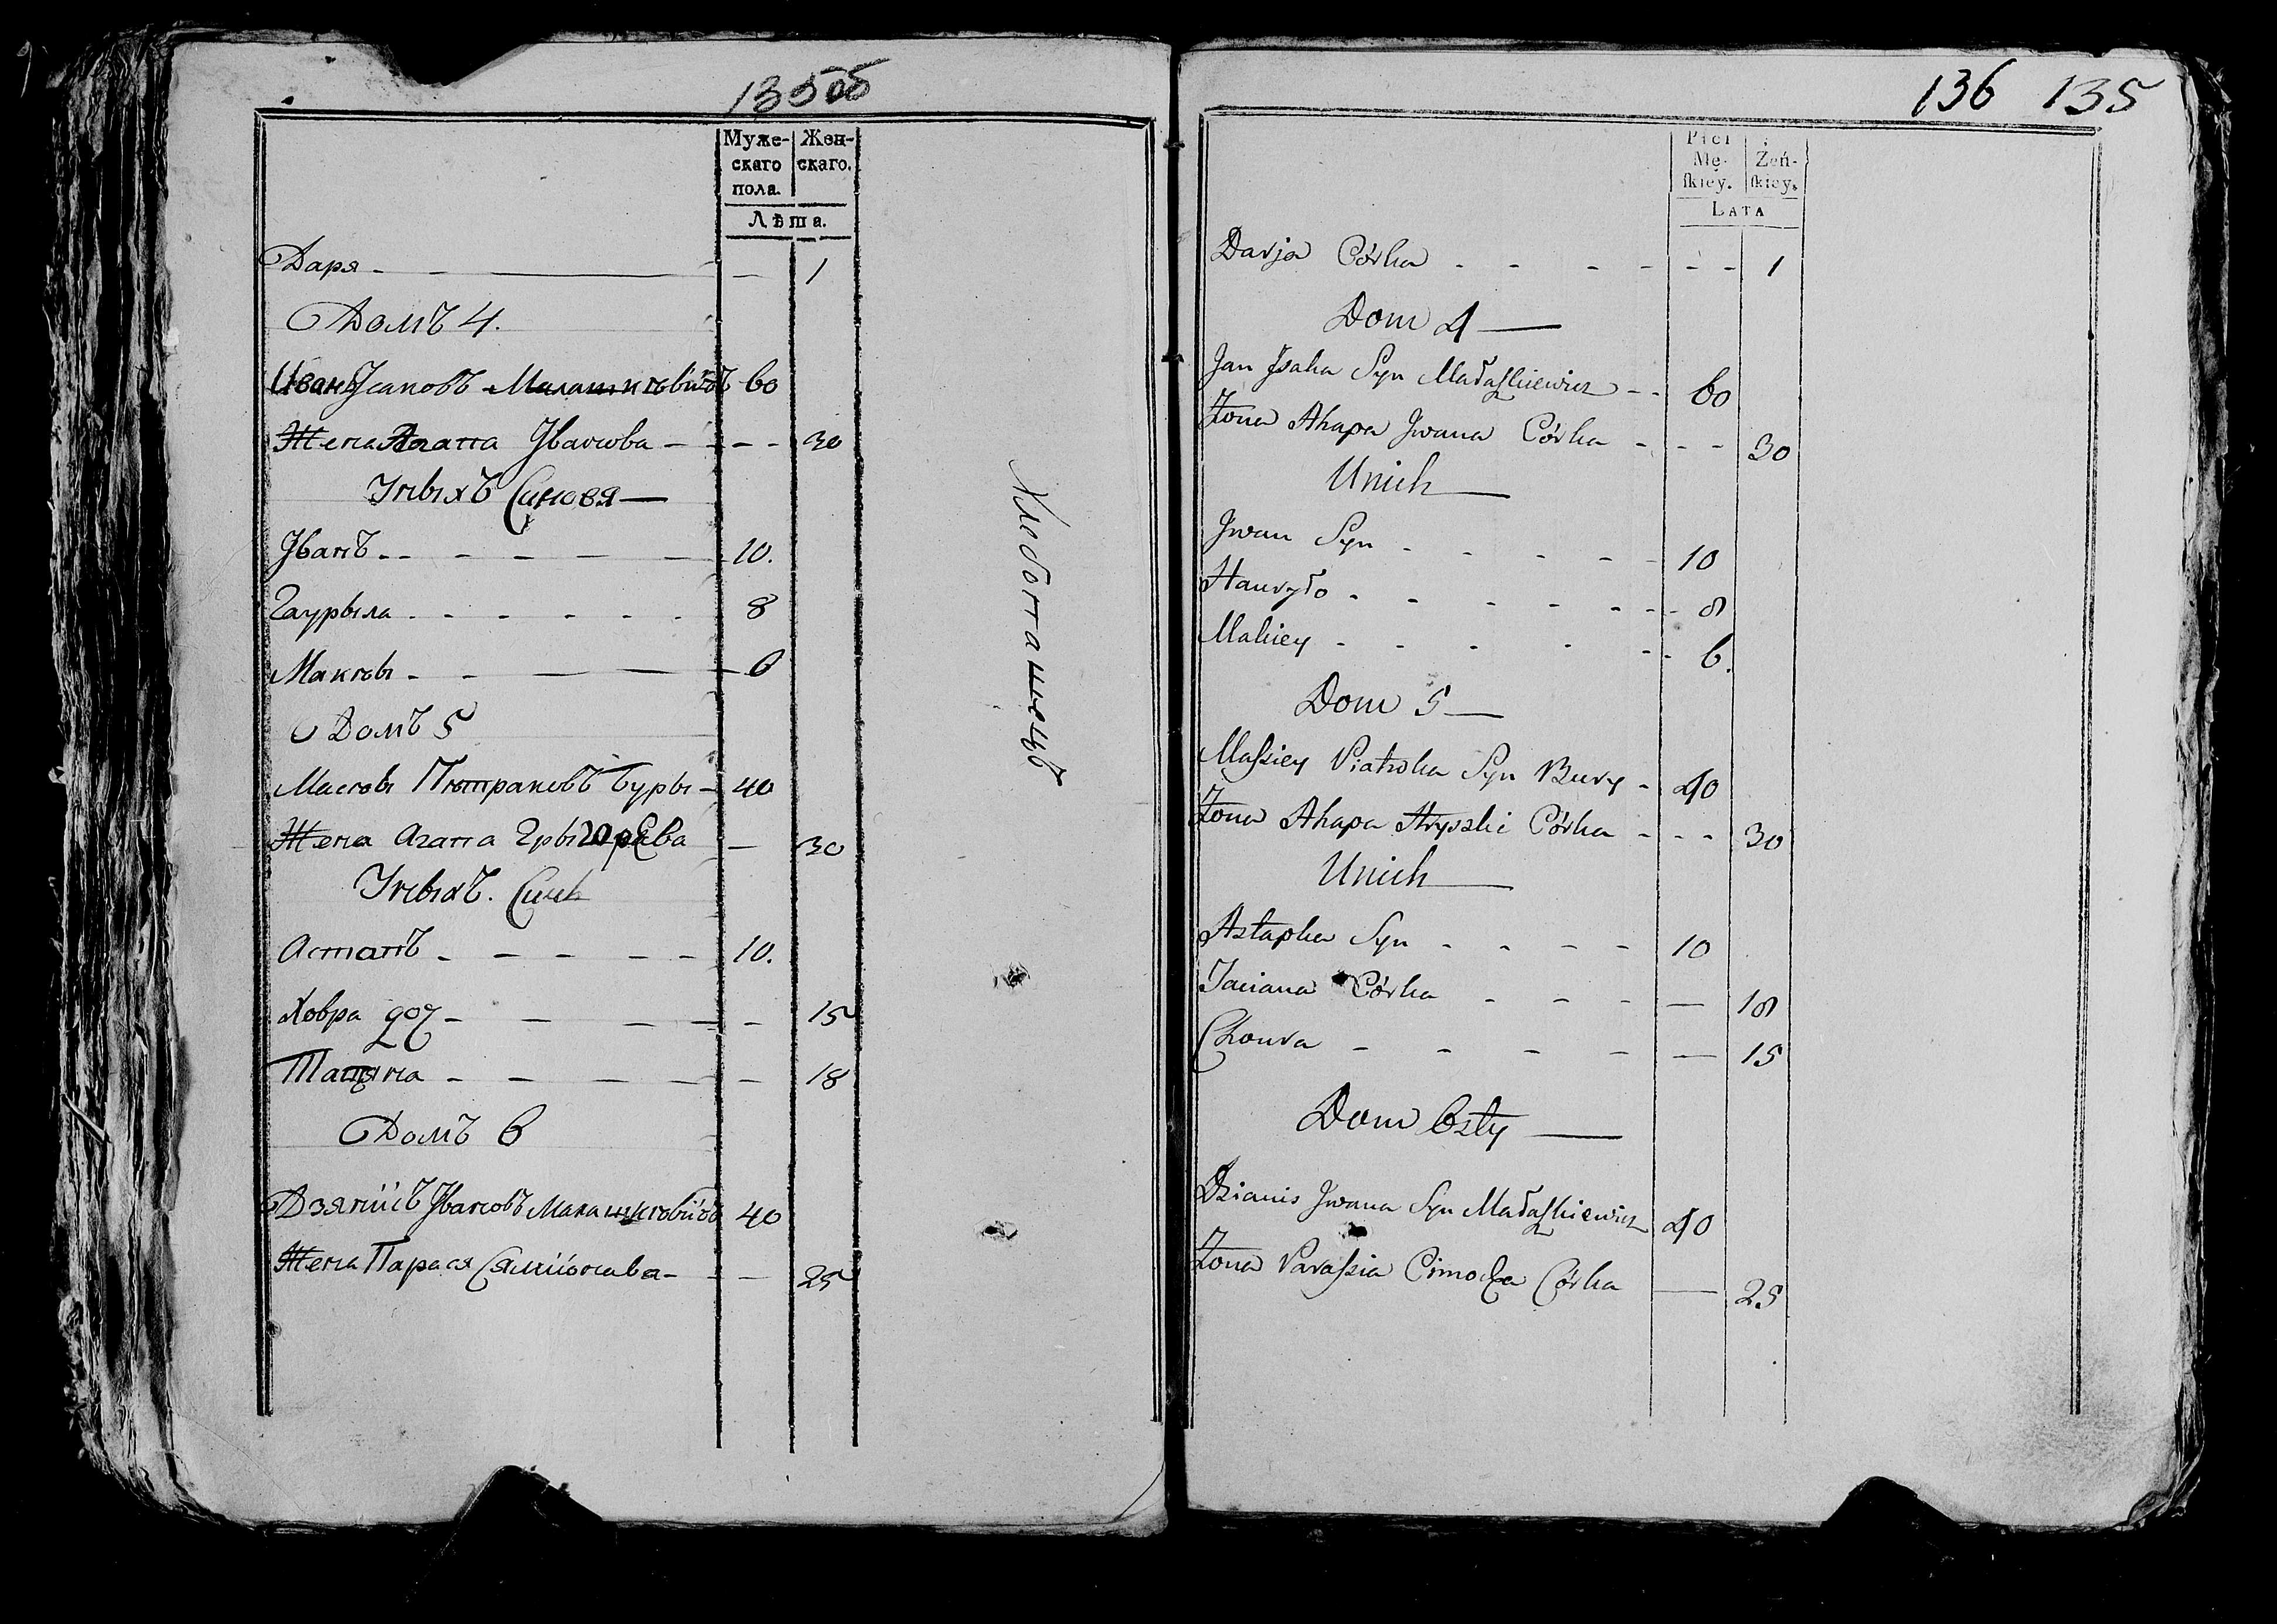 135об
Муже-
скаго
пола.
Жен-
скаго.
Лѣта.
Даря - - - 1
Домъ 4.
Иванъ Јсаковъ Малашкевичъ 60
Жена Агапа Јванова - - - 30
Унвыхъ Синовя
Јванъ - - - - - 10.
Гаурыла - - - - - - 8
Макѣы - - - 6
Домъ 5
Масѣы Пѣтраковъ Буры - 40
Жена Агапа Грыгорева - 30
Унвыхъ. Синъ
Астапъ - - - - - 10.
Ховра доч - - - - - 15
Тацяна - - - - - 18
Домъ 6
Дзянисъ Јвановъ Малашкевичъ 40
Жена Парася Сямионава - - 25
136 135
Płci
Mę-
ſkiey.
Żeń-
ſkiey.
LATA
Darja Córka - - - - - - 1
Dom 4
Jan Jsaka Syn Małaſzkiewicz - - 60
Żona Ahapa Jwana Córka - - - 30
Unich
Jwan Syn - - - - - 10
Hauryło - - - - - - - 8
Makiey - - - - - - 6.
Dom 5
Maſsiey Piatroka Syn Bury - 40
Żona Ahapa Hryszki Córka - - - 30
Unich
Astapka Syn - - - - 10
Taciana Córka - - - - 18
Choura - - - - - 15
Dom 6sty
Dzianis Jwana Syn Małaſzkiewicz 40
Żona Paraſsia Córka - 25